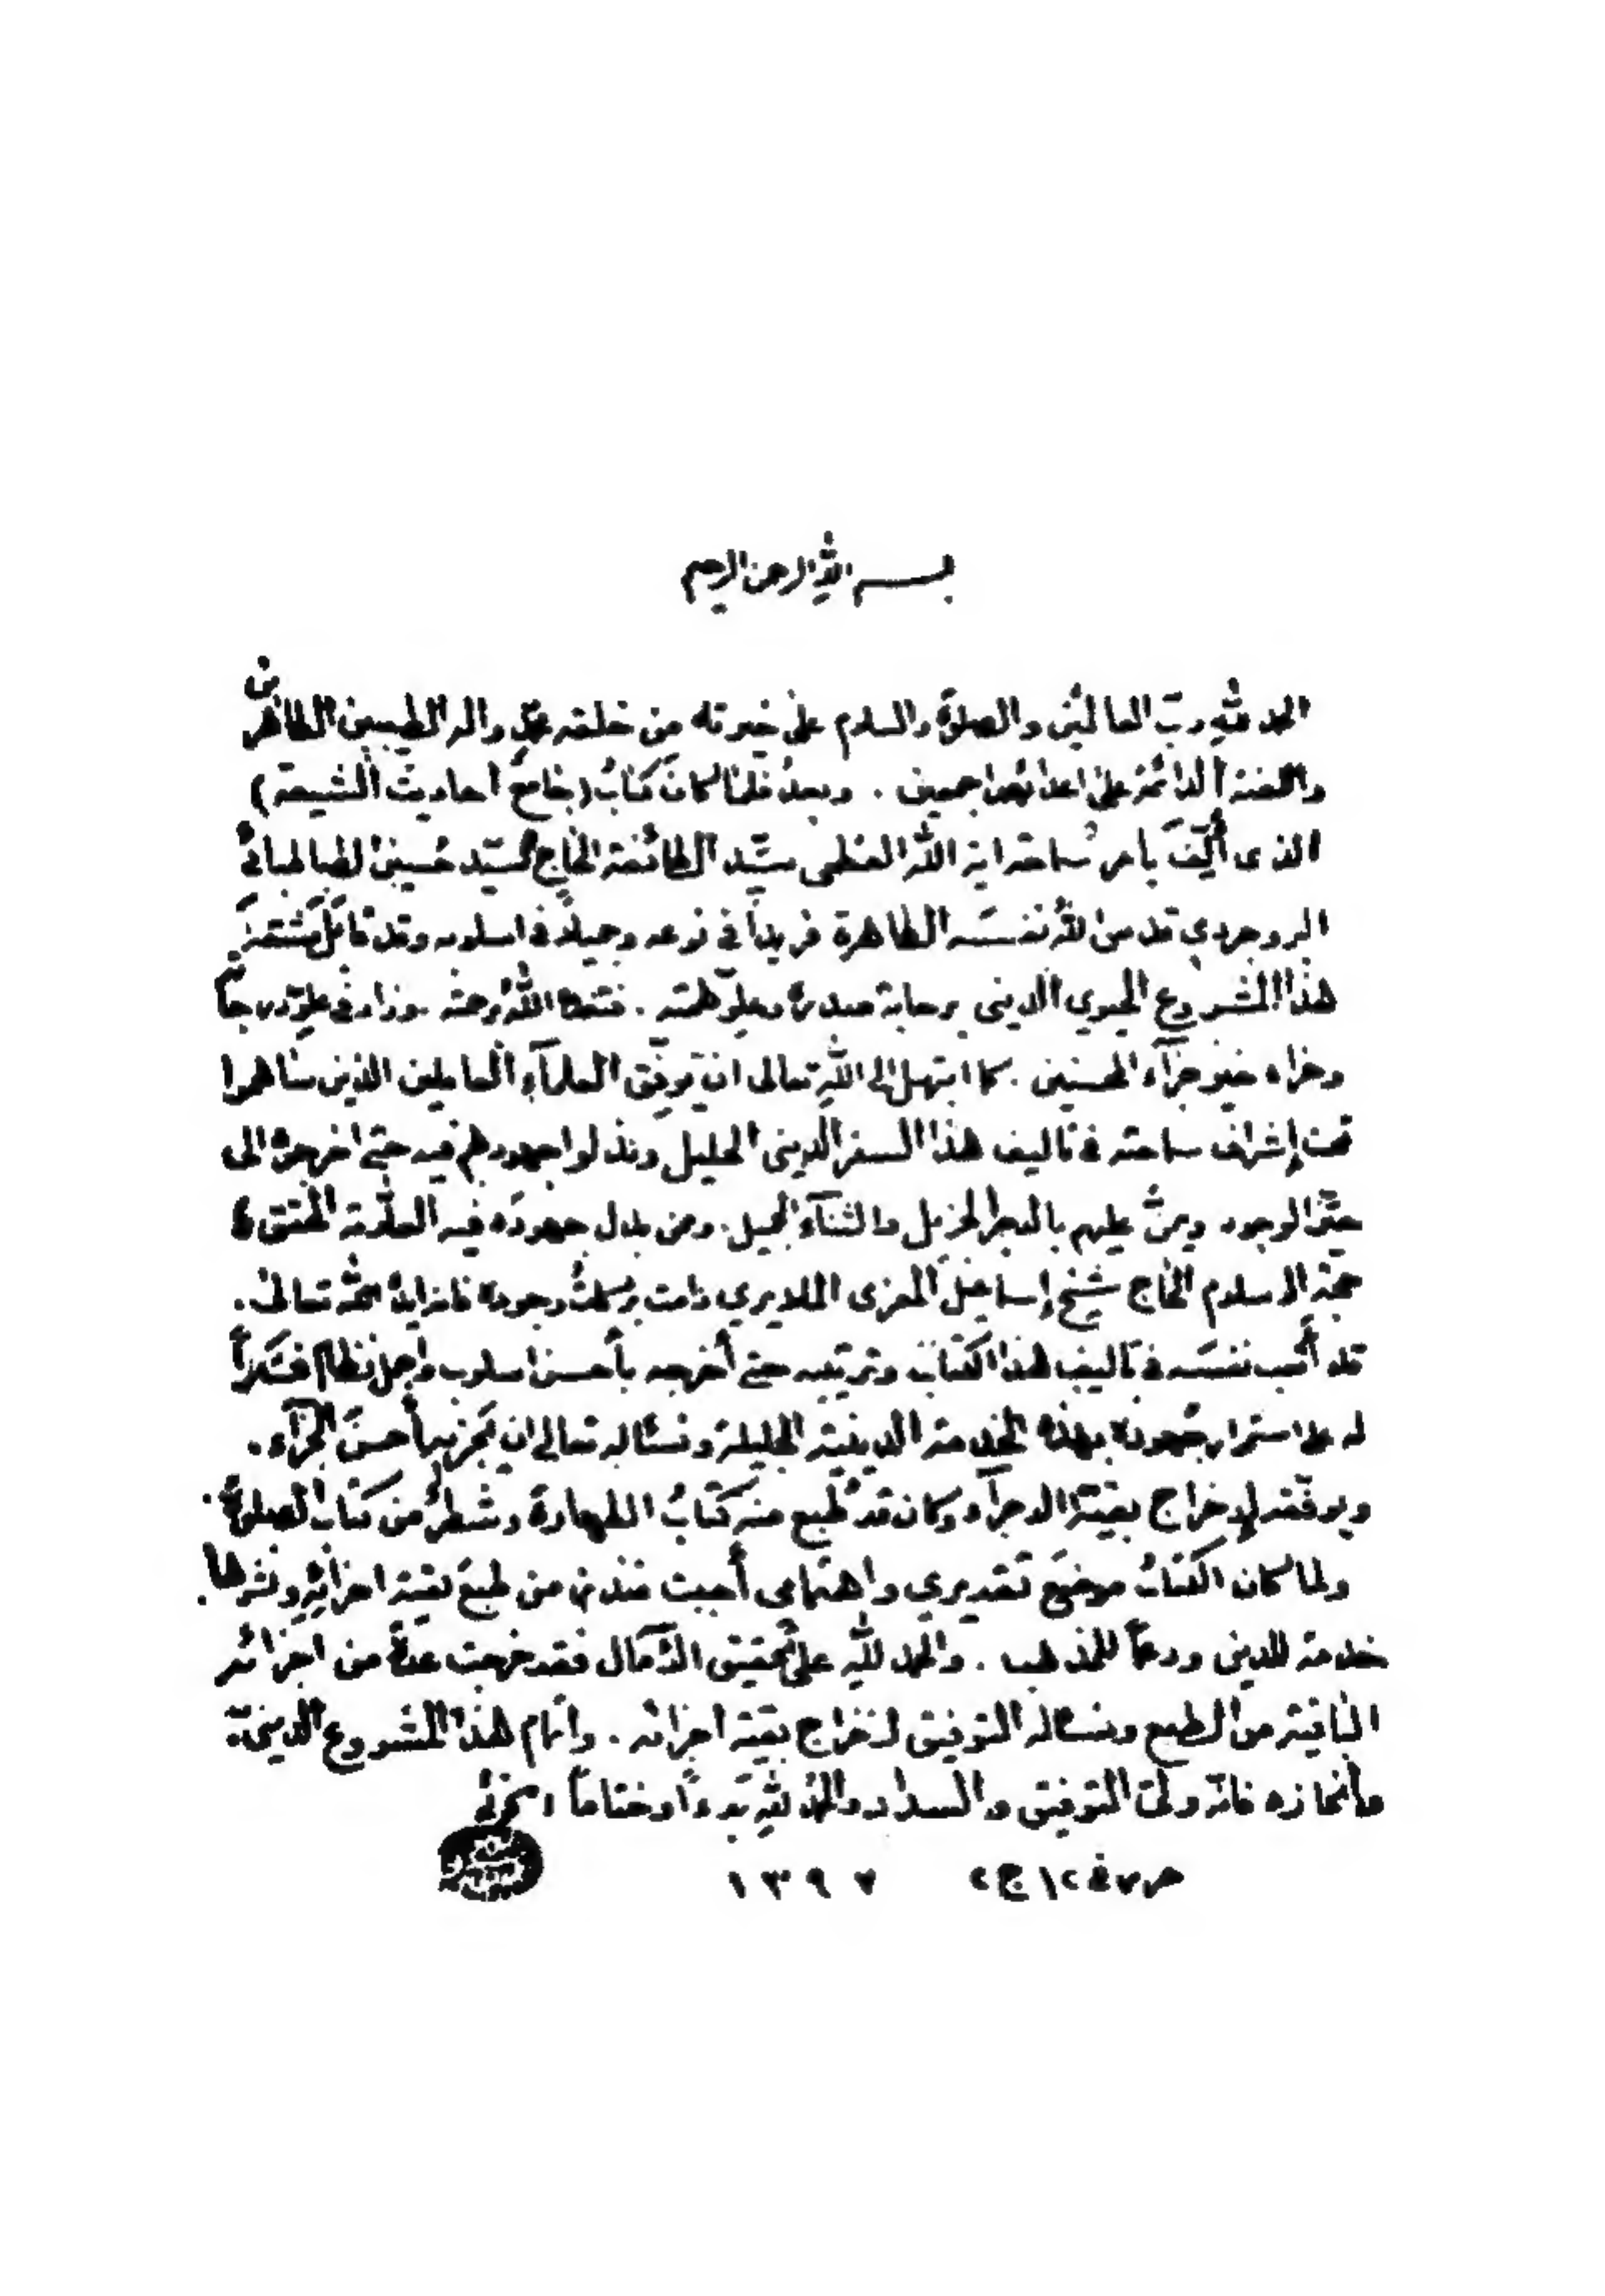 بسم الله الرحمن الرحيم
الحمد لله رب العالمين والصلوة والسلام على خيرته من خلقه محمد واله الطيبين الطاهرين
واللعنة الدائمة على اعدائهم اجمعين . وبعد فلما كان كتاب (جامع احاديث الشيعة)
الذى أُلّف بامر سماحة اية الله العظمى سيّد الطائفة الحاج السيّد حسين الطباطبائى
البروجردي قدس الله نفسه الطاهرة فريداً في نوعه وجميلاً في اسلوبه وقد
هذا المشروع الحيوي الدينى برحابة صدره وعلوّ همّته . فتغمده الله برحمته وزاد في علوّ درجاته
وجزاه خير جزآء المحسنين . كما ابتهل الى الله تعالى ان يوفّق العلمآء العاملين الذين ساهموا
تحت إشراف سماحته في تاليف هذا السفر الدينى الجليل وبذلوا جهودهم فيه حتى اخرجوه الى
حيّز الوجود ويمنّ عليهم بالاجر الجزيل والثنآء الجميل . وممن بذل جهوده فيه العلّامة المحقق
حجة الاسلام الحاج شيخ إسماعيل المعزى الملايري دامت بركات وجوده فانه ايده الله تعالى .
قد أتعب نفسه في تاليف هذا الكتاب وترتيبه حتى أخرجه بأحسن اسلوب واجمل نظام فشكراً
له على استمرار جهوده بهذه الخدمة الدينية الجليلة ونسئاله تعالى ان يجزيه أحسن الجزآء .
ويوفّقه لإخراج بقيّة الاجزآء وكان قد طُبع منه كتابُ الطهارة وشطرٌ من كتاب الصلوة .
ولما كان الكتاب موضع تقديري واهتمامى أحببت تنفيذ من طبع بقية اجزائه ونشرها .
خدمة للدين ودعماً للمذهب . والحمد لله على تحقيق الآمال فقد خرجت عدة من اجزائه
الباقية من الطبع ونسئاله التوفيق لاخراج بقيّة اجزائه . واتمام هذا المشروع الدينى
وانجازه فانّه ولىّ التوفيق والسداد والحمد لله بَدءاً وختاماً الخوئى
حرر في ١٢ ج٢ ١٣٩٧